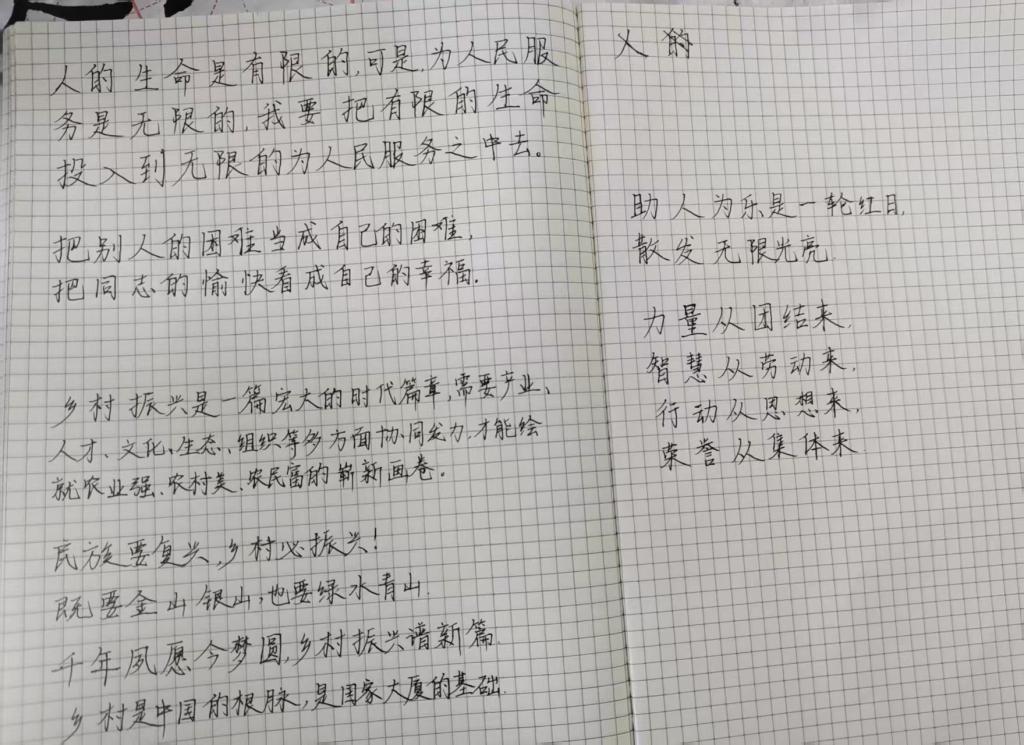 人的生命是有限的,可是,为人民服
务是无限的,我要把有限的生命
投入到无限的为人民服务之中去。
把别人的困难当成自己的困难,
把同志的愉快看成自己的幸福.
乡村振兴是一篇宏大的时代篇章,需要产业、
人才、文化、生态、组织等多方面协同发力,才能绘
就农业强、农村美、农民富的崭新画卷.
民族要复兴,乡村必振兴!
既要金山银山,也要绿水青山.
千年夙愿今梦圆,乡村振兴谱新篇.
乡村是中国的根脉,是国家大厦的基础.
人的
助人为乐是一轮红日,
散发无限光亮.
力量从团结来,
智慧从劳动来,
行动从思想来,
荣誉从集体来.